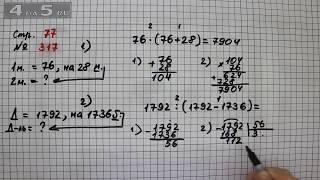 4 ДА 5.RU
Стр. 77
№ 317
1)
1м. = 76, на 28 с.
2м. = ?
76 · (76 + 28) = 7904
1) + 76
28
104
2) × 104
76
+ 624
728
7904
2)
Δ = 1792, на 1736 б.
Δ-ль = ?
1792 : (1792 - 1736) =
1) - 1792
1736
56
2) - 1792 56
168 3
112